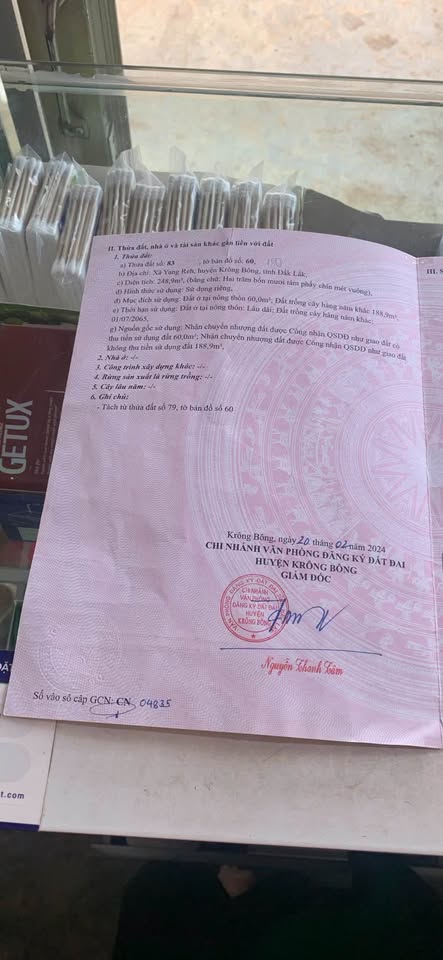 II. Thửa đất, nhà ở và tài sản khác gắn liền với đất
1. Thửa đất:
a) Thửa đất số: 83 , tờ bản đồ số: 60,
b) Địa chỉ: Xã Yang Reh, huyện Krông Bông, tỉnh Đắk Lắk,
c) Diện tích: 248,9m², (bằng chữ: Hai trăm bốn mươi tám phẩy chín mét vuông),
d) Hình thức sử dụng: Sử dụng riêng,
đ) Mục đích sử dụng: Đất ở tại nông thôn 60,0m²; Đất trồng cây hàng năm khác 188,9m²,
e) Thời hạn sử dụng: Đất ở tại nông thôn: Lâu dài; Đất trồng cây hàng năm khác:
01/07/2065,
g) Nguồn gốc sử dụng: Nhận chuyển nhượng đất được Công nhận QSDĐ như giao đất có
thu tiền sử dụng đất 60,0m²; Nhận chuyển nhượng đất được Công nhận QSDĐ như giao đất
không thu tiền sử dụng đất 188,9m²,
2. Nhà ở: -/-
3. Công trình xây dựng khác: -/-
4. Rừng sản xuất là rừng trồng: -/-
5. Cây lâu năm: -/-
6. Ghi chú:
- Tách từ thửa đất số 79, tờ bản đồ số 60
III. S
GETUX
Krông Bông, ngày 20 tháng 02 năm 2024
CHI NHÁNH VĂN PHÒNG ĐĂNG KÝ ĐẤT ĐAI
HUYỆN KRÔNG BÔNG
GIÁM ĐỐC
CHI NHÁNH
VĂN PHÒNG
ĐĂNG KÝ ĐẤT ĐAI
HUYỆN
KRÔNG BÔNG
Nguyễn Thanh Tâm
Số vào sổ cấp GCN: CN 04835
t.com